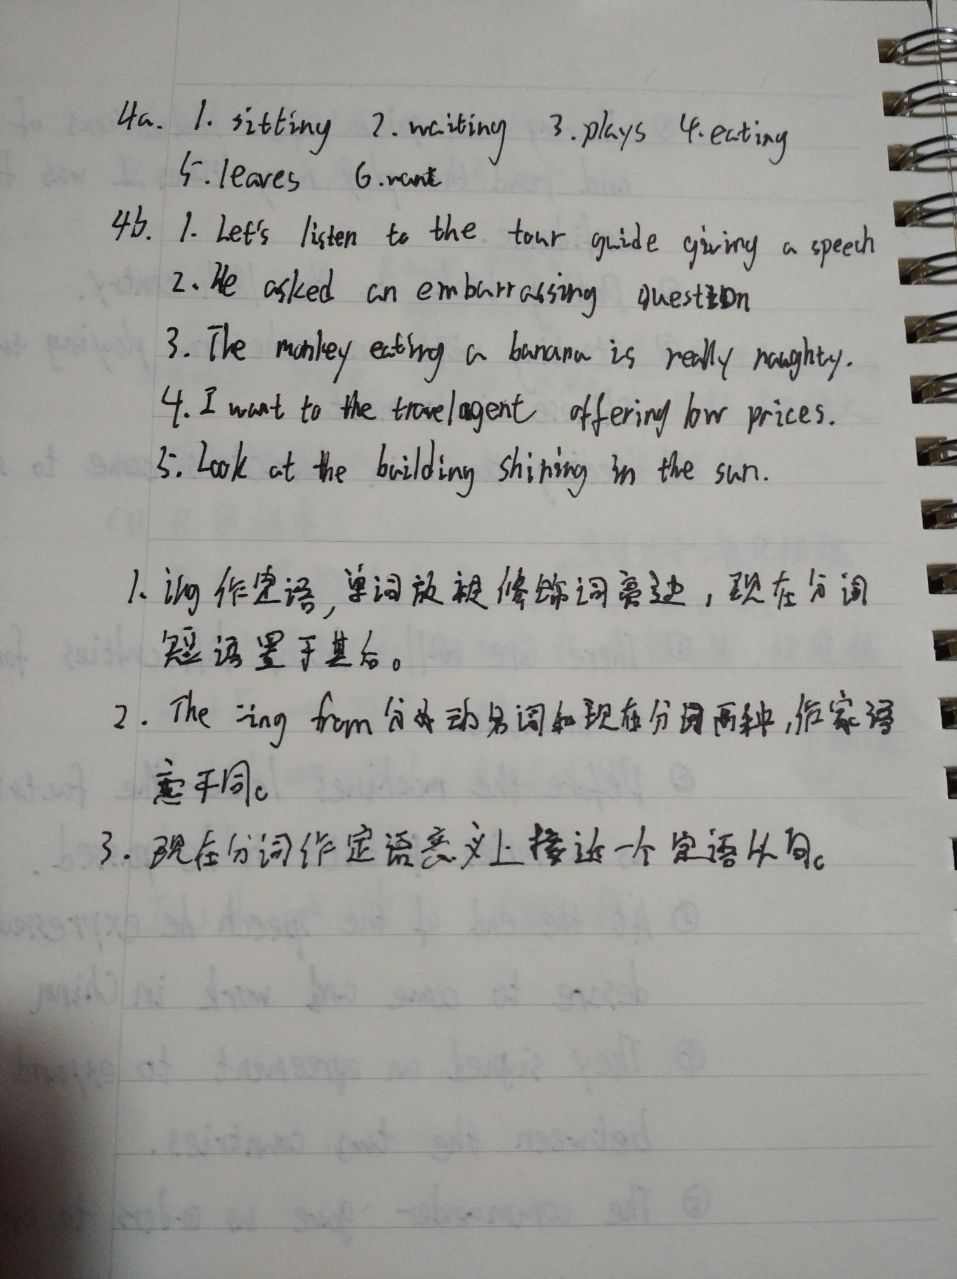 4a. 1. sitting 2. waiting 3. plays 4. eating
5. leaves 6. want
4b. 1. Let's listen to the tour guide giving a speech
2. He asked an embarrassing question
3. The monkey eating a banana is really naughty.
4. I want to the travel agent offering low prices.
5. Look at the building shining in the sun.
1. ing 作定语, 单词放被修饰词旁边, 现在分词
短语置于其后。
2. The -ing from 分为动名词和现在分词两种, 作定语
意不同。
3. 现在分词作定语意义上接近一个定语从句。